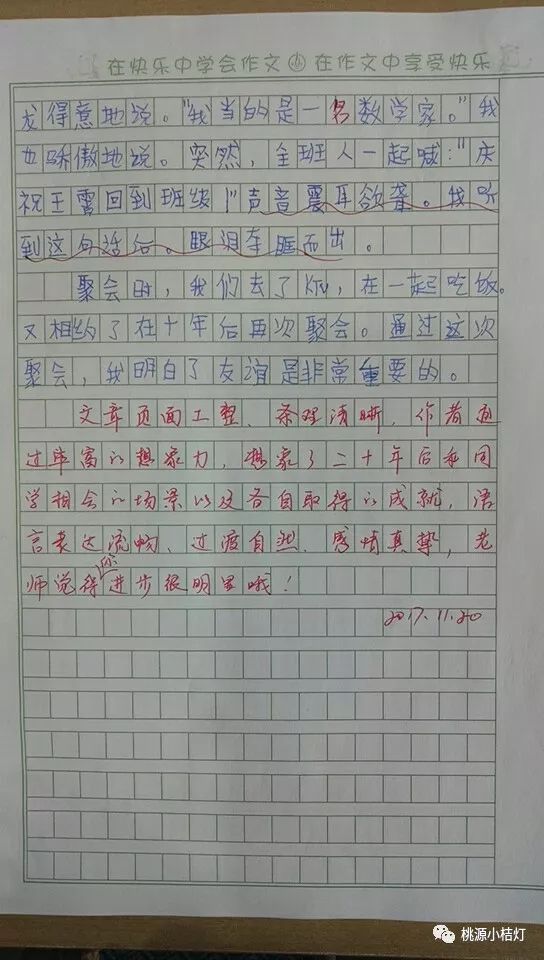 在快乐中学会作文 在作文中享受快乐
发得意地说。“我当的是一名数学家。”我
也骄傲地说。突然，全班人一起喊：“庆
祝王雪回到班级！”声音震耳欲聋。我听
到这句话后。眼泪夺眶而出。
聚会时，我们去了KTV，在一起吃饭。
又相约了在十年后再次聚会。通过这次
聚会，我明白了友谊是非常重要的。
文章页面工整、条理清晰，作者通
过丰富的想象力，想象了二十年后和同
学相会的场景以及各自取得的成就，语
言表达流畅、过渡自然、感情真挚，老
师觉得你进步很明显哦！
2017.11.20
桃源小桔灯